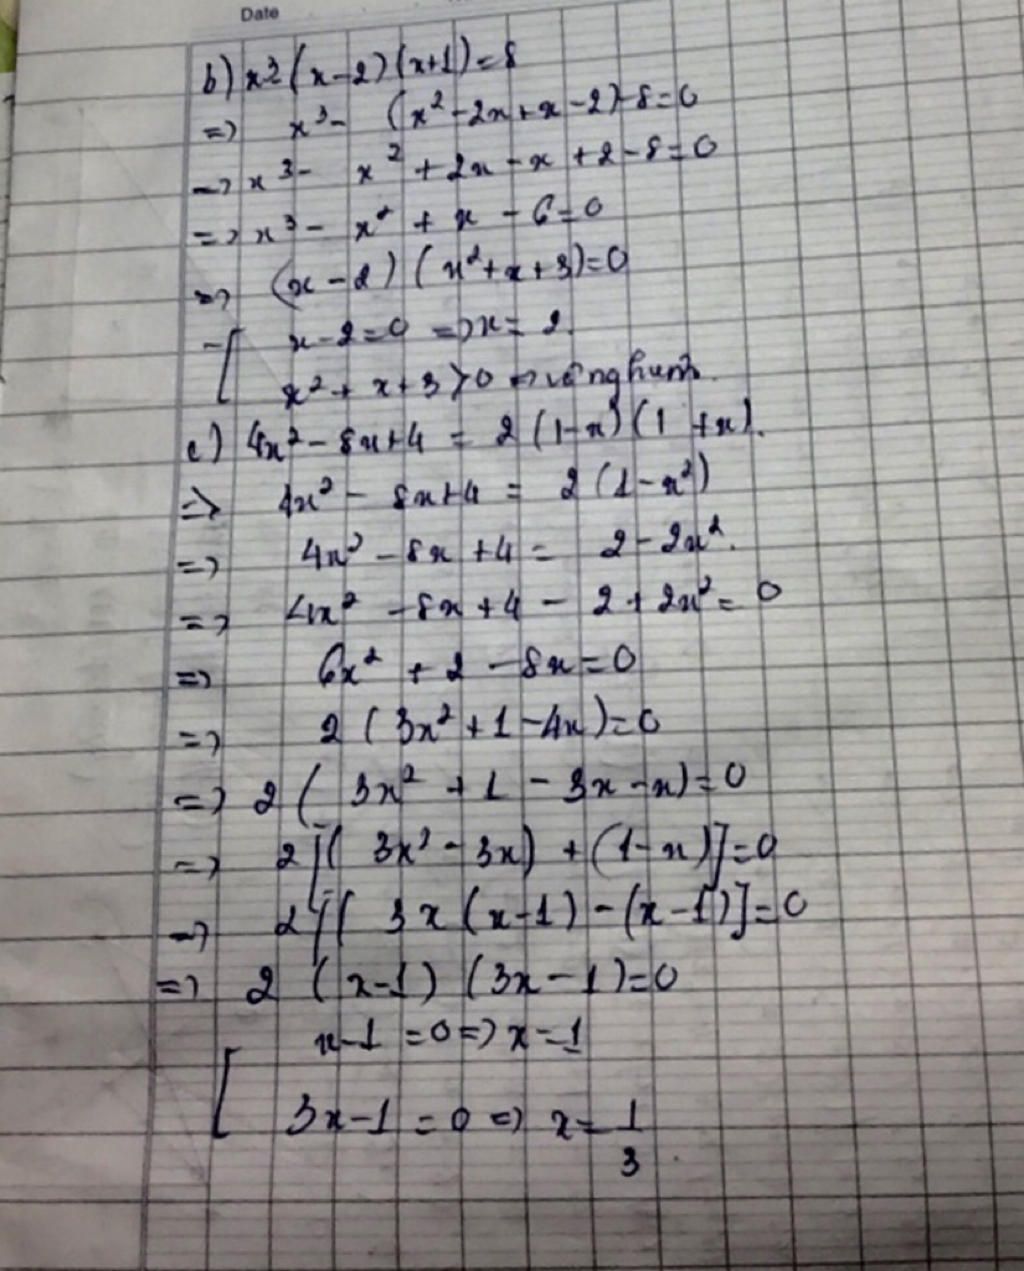 Date
b) x³ - (x-2)(x+1) = 8
=> x³ - (x² - 2x + x - 2) - 8 = 0
=> x³ - x² + 2x - x + 2 - 8 = 0
=> x³ - x² + x - 6 = 0
=> (x - 2)(x² + x + 3) = 0
[ x - 2 = 0 => x = 2.
x² + x + 3 > 0 => vô nghiệm.
c) 4x² - 8x + 4 = 2(1-x)(1+x).
=> 4x² - 8x + 4 = 2(1 - x²)
=> 4x² - 8x + 4 = 2 - 2x².
=> 4x² - 8x + 4 - 2 + 2x² = 0
=> 6x² + 2 - 8x = 0
=> 2(3x² + 1 - 4x) = 0
=> 2(3x² + 1 - 3x - x) = 0
=> 2[(3x² - 3x) + (1 - x)] = 0
=> 2[(3x(x-1) - (x-1)] = 0
=> 2(x-1)(3x-1) = 0
[ x-1 = 0 => x = 1
3x-1 = 0 => x = 1/3.